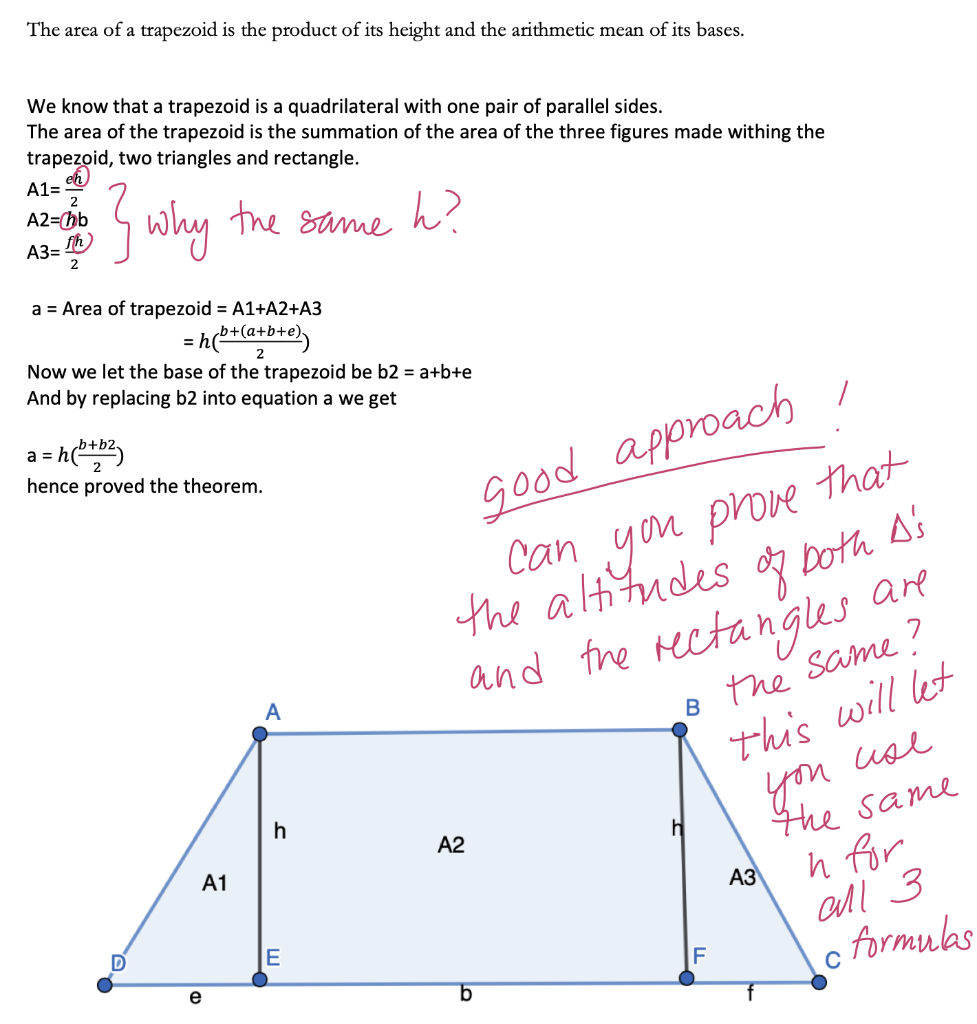 The area of a trapezoid is the product of its height and the arithmetic mean of its bases.
We know that a trapezoid is a quadrilateral with one pair of parallel sides.
The area of the trapezoid is the summation of the area of the three figures made withing the
trapezoid, two triangles and rectangle.
A1= eh/2
A2=hb
A3= fh/2
} why the same h?
a = Area of trapezoid = A1+A2+A3
= h(b+(a+b+e)/2)
Now we let the base of the trapezoid be b2 = a+b+e
And by replacing b2 into equation a we get
a = h(b+b2/2)
hence proved the theorem.
good approach !
Can you prove that
the altitudes of both Δ's
and the rectangles are
the same?
this will let
you use
the same
h for
all 3
formulas
A
B
h
h
A2
A1
A3
D
E
F
C
e
b
f